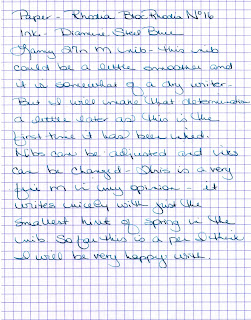 Paper - Rhodia Bloc Rhodia Nº16
Ink - Diamine Steel Blue
Lamy 27n M nib - this nib
could be a little smoother and
it is somewhat of a dry writer -
But I will make that determination
a little later as this is the
first time it has been inked.
Nibs can be adjusted and inks
can be changed - This is a very
fine M in my opinion - it
writes nicely with just the
smallest hint of spring in the
nib. So far this is a pen I think
I will be very happy with.